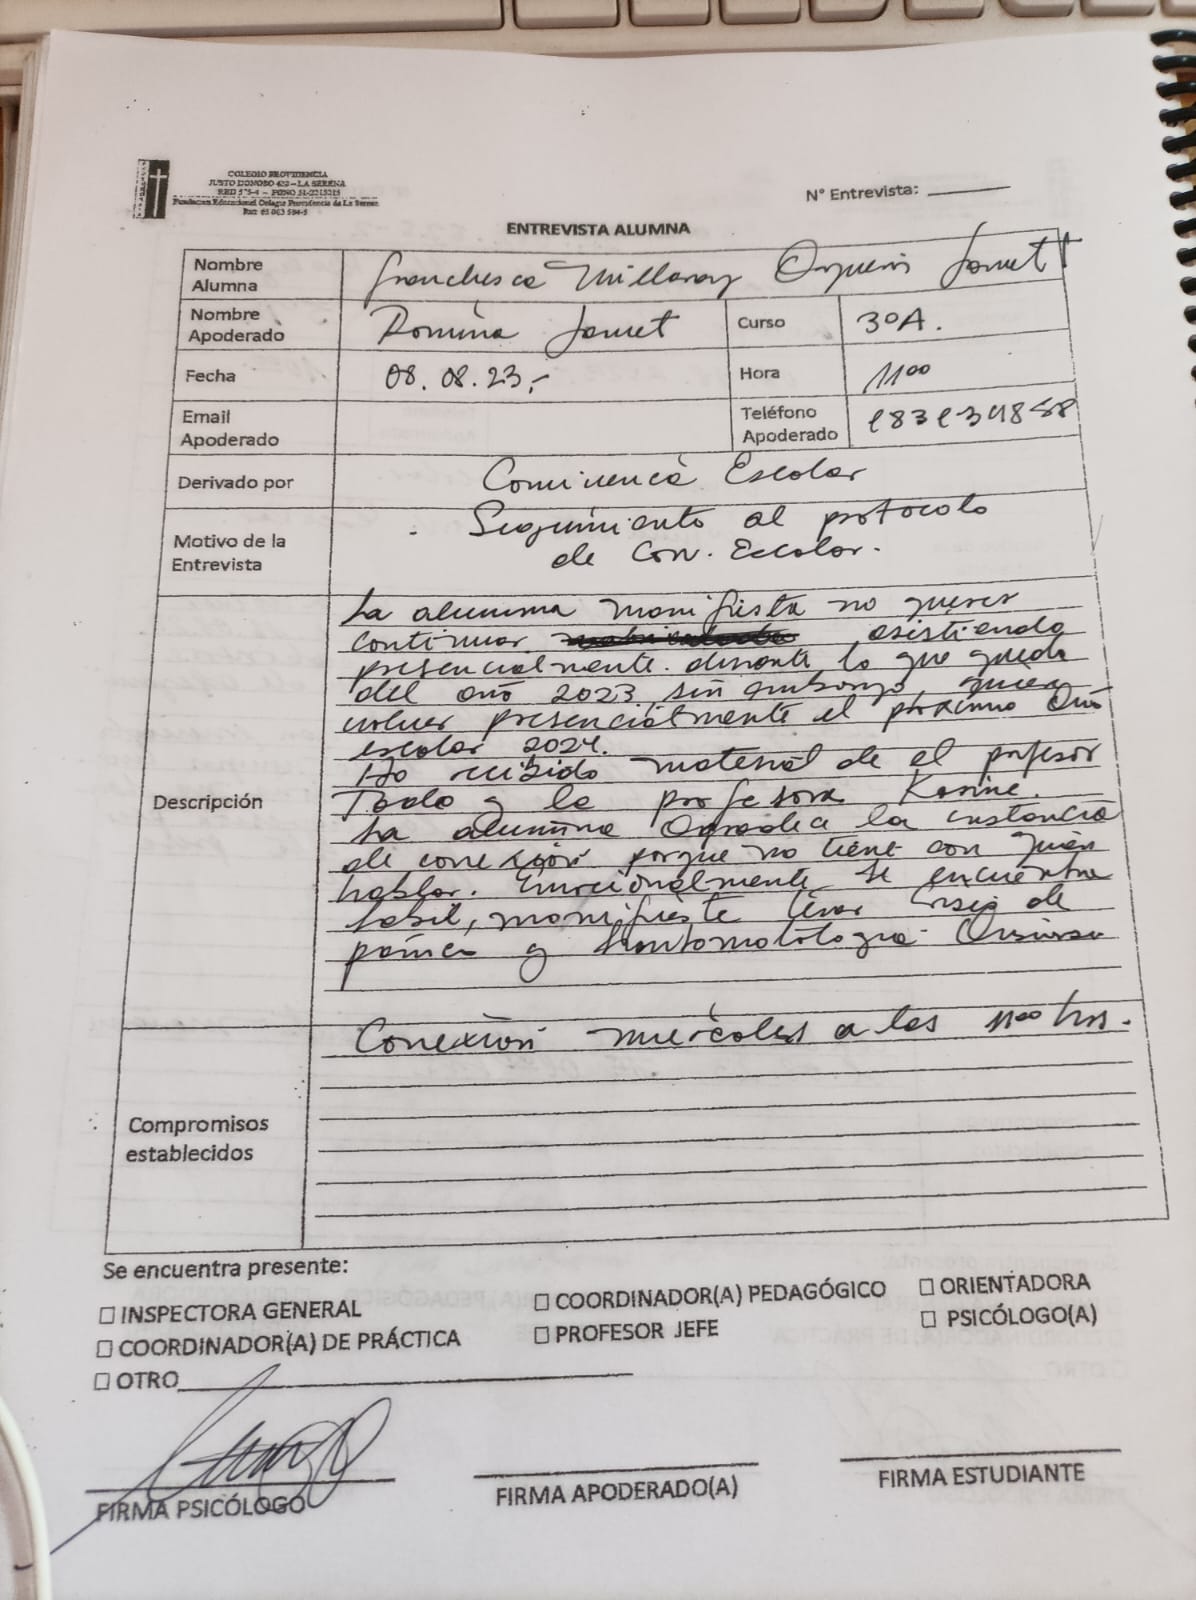 COLEGIO PROVIDENCIA
JUSTO DONOSO 420 – LA SERENA
RBD 575-4 – FONO 51-2215215
Fundacion Educacional Colegio Providencia de La Serena
Rut: 65.063.594-5
N° Entrevista:
ENTREVISTA ALUMNA
Nombre Alumna Franchesca Millaray Jamett
Nombre Apoderado Romina Jamet Curso 3ºA.
Fecha 08.08.23,- Hora 11⁰⁰
Email Apoderado Teléfono Apoderado
Derivado por Convivencia Escolar
Motivo de la Entrevista . Seguimiento al protocolo
de Con. Escolar.
Descripción
La alumna manifiesta no querer
continuar asistiendo
presencialmente durante lo que queda
del año 2023, sin embargo, quiere
volver presencialmente el próximo año
escolar 2024.
Ha recibido material de el profesor
y la profesora Karine.
La alumna agradece la instancia
de conexión porque no tiene con quien
hablar. Emocionalmente se encuentra
lábil, manifiesta tener crisis de
pánico y sintomatología ansiosa
Compromisos establecidos
Conexión miércoles a las 11⁰⁰ hrs.
Se encuentra presente:
☐ INSPECTORA GENERAL ☐ COORDINADOR(A) PEDAGÓGICO ☐ ORIENTADORA
☐ COORDINADOR(A) DE PRÁCTICA ☐ PROFESOR JEFE ☐ PSICÓLOGO(A)
☐ OTRO
FIRMA PSICÓLOGO FIRMA APODERADO(A) FIRMA ESTUDIANTE